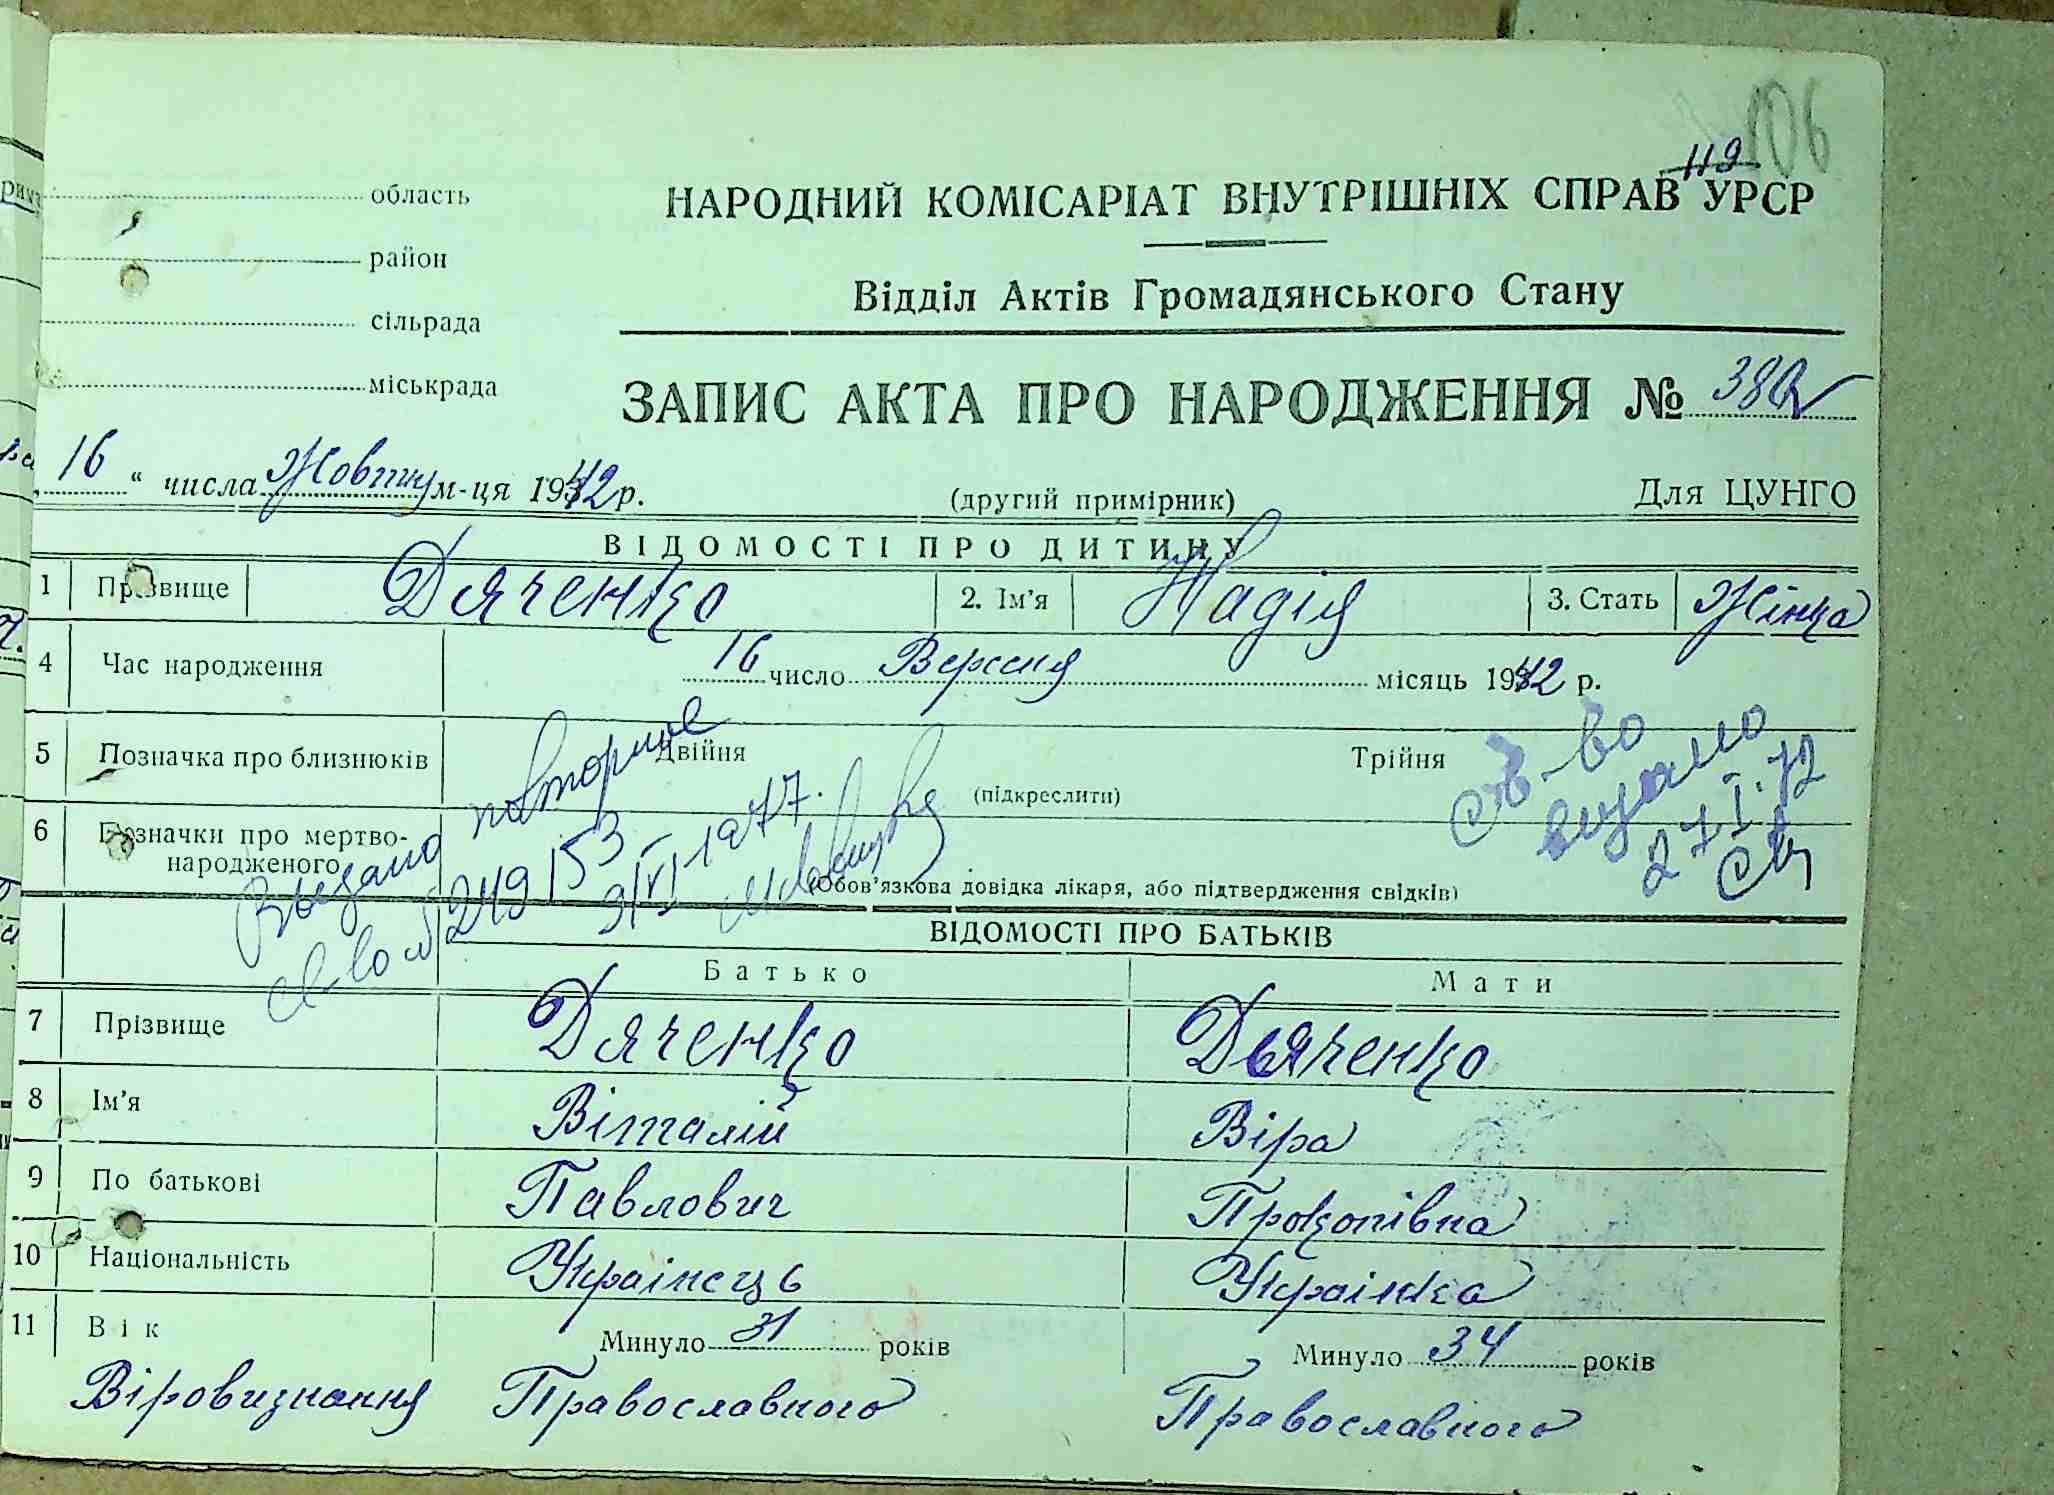 106
119
область
район
сільрада
міськрада
НАРОДНИЙ КОМІСАРІАТ ВНУТРІШНІХ СПРАВ УРСР
Відділ Актів Громадянського Стану
ЗАПИС АКТА ПРО НАРОДЖЕННЯ №
16 " числа Жовтня м-ця 1942 р. (другий примірник) Для ЦУНГО
ВІДОМОСТІ ПРО ДИТИНУ
1 Прізвище Дяченко 2. Ім'я Надія 3. Стать Жінка
4 Час народження 16 число Вересня місяць 1942 р.
5 Позначка про близнюків Двійня Трійня
(підкреслити)
6 Позначки про мертво-
народженого
(Обов'язкова довідка лікаря, або підтвердження свідків)
Выдано повторное
св-во № 249153
9/VI-1977.
св-во
видано
27.I.72
ВІДОМОСТІ ПРО БАТЬКІВ
Батько Мати
7 Прізвище Дяченко Дьяченко
8 Ім'я Віталій Віра
9 По батькові Павлович Прокопівна
10 Національність Українець Українка
11 Вік Минуло 31 років Минуло 34 років
Віровизнання Православного Православного